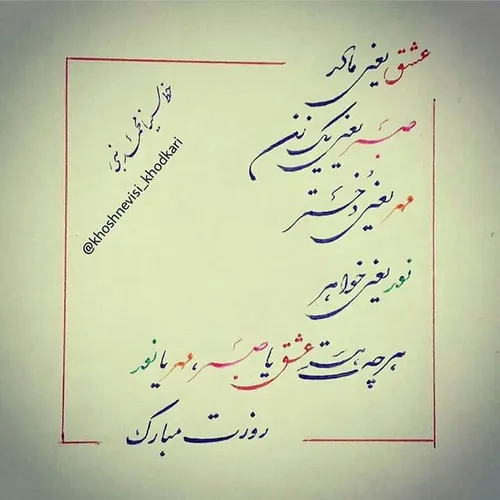 عشق یعنی مادر
صبر یعنی یک زن
مهر یعنی دختر
نور یعنی خواهر
هر چه هست عشق یا صبر، مهر یا نور
روزت مبارک
@khoshnevisi_khodkari